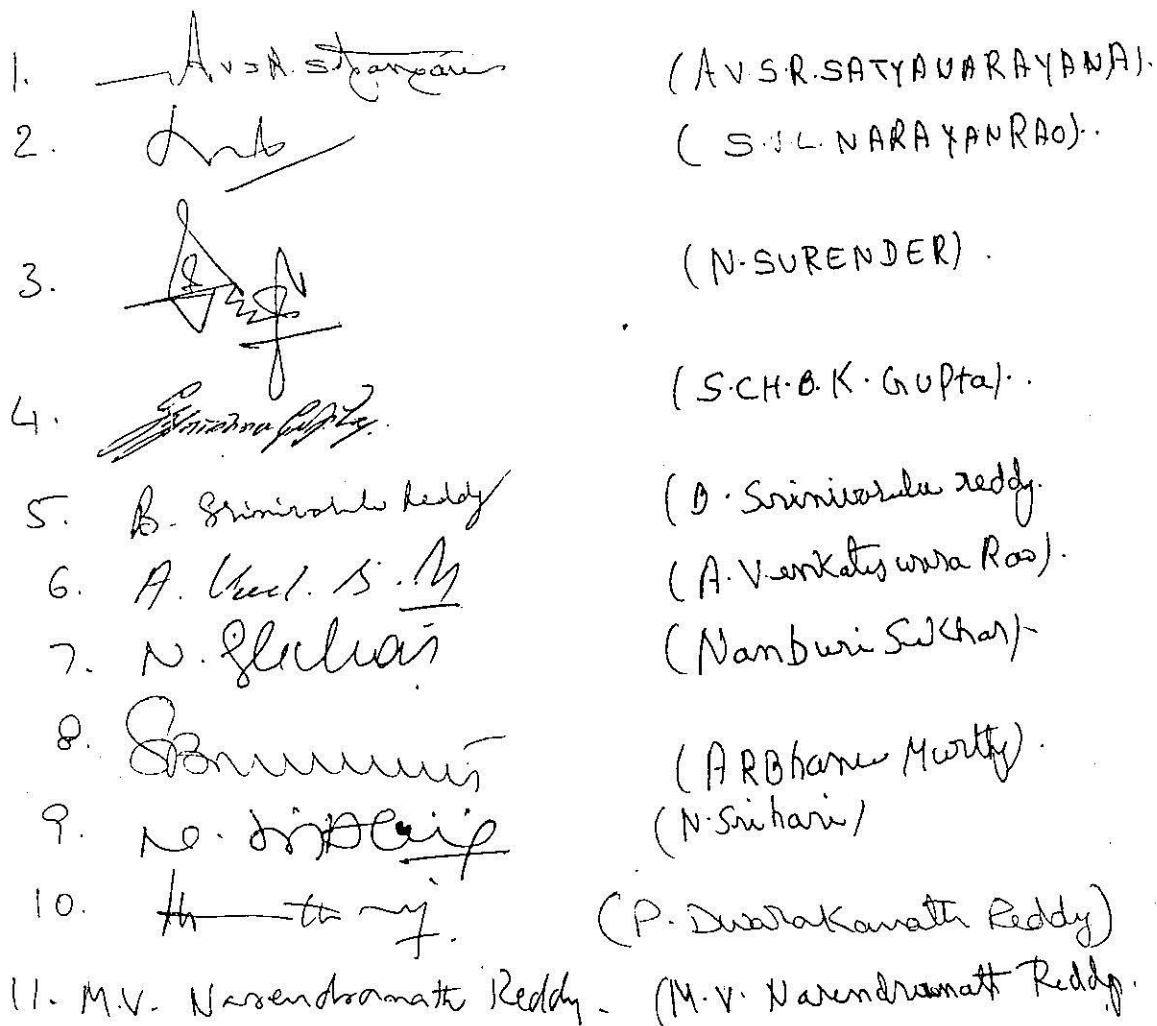 1. A V S R. Satyanarayana (A V S.R. SATYANARAYANA).
2. (S.J.L. NARAYANRAO)..
3. (N. SURENDER).
4. (S.CH.B.K. GUPta)..
5. B. Srinivasulu Reddy (B. Srinivasulu reddy.
6. A. (A. Venkateswara Rao).
7. N. Sekhar (Nanburi Sekhar).
8. (A R Bhanu Murthy).
9. N. (N. Srihari)
10. (P. Dwarakanath Reddy)
11. M.V. Narendranath Reddy. (M.V. Narendranath Reddy.